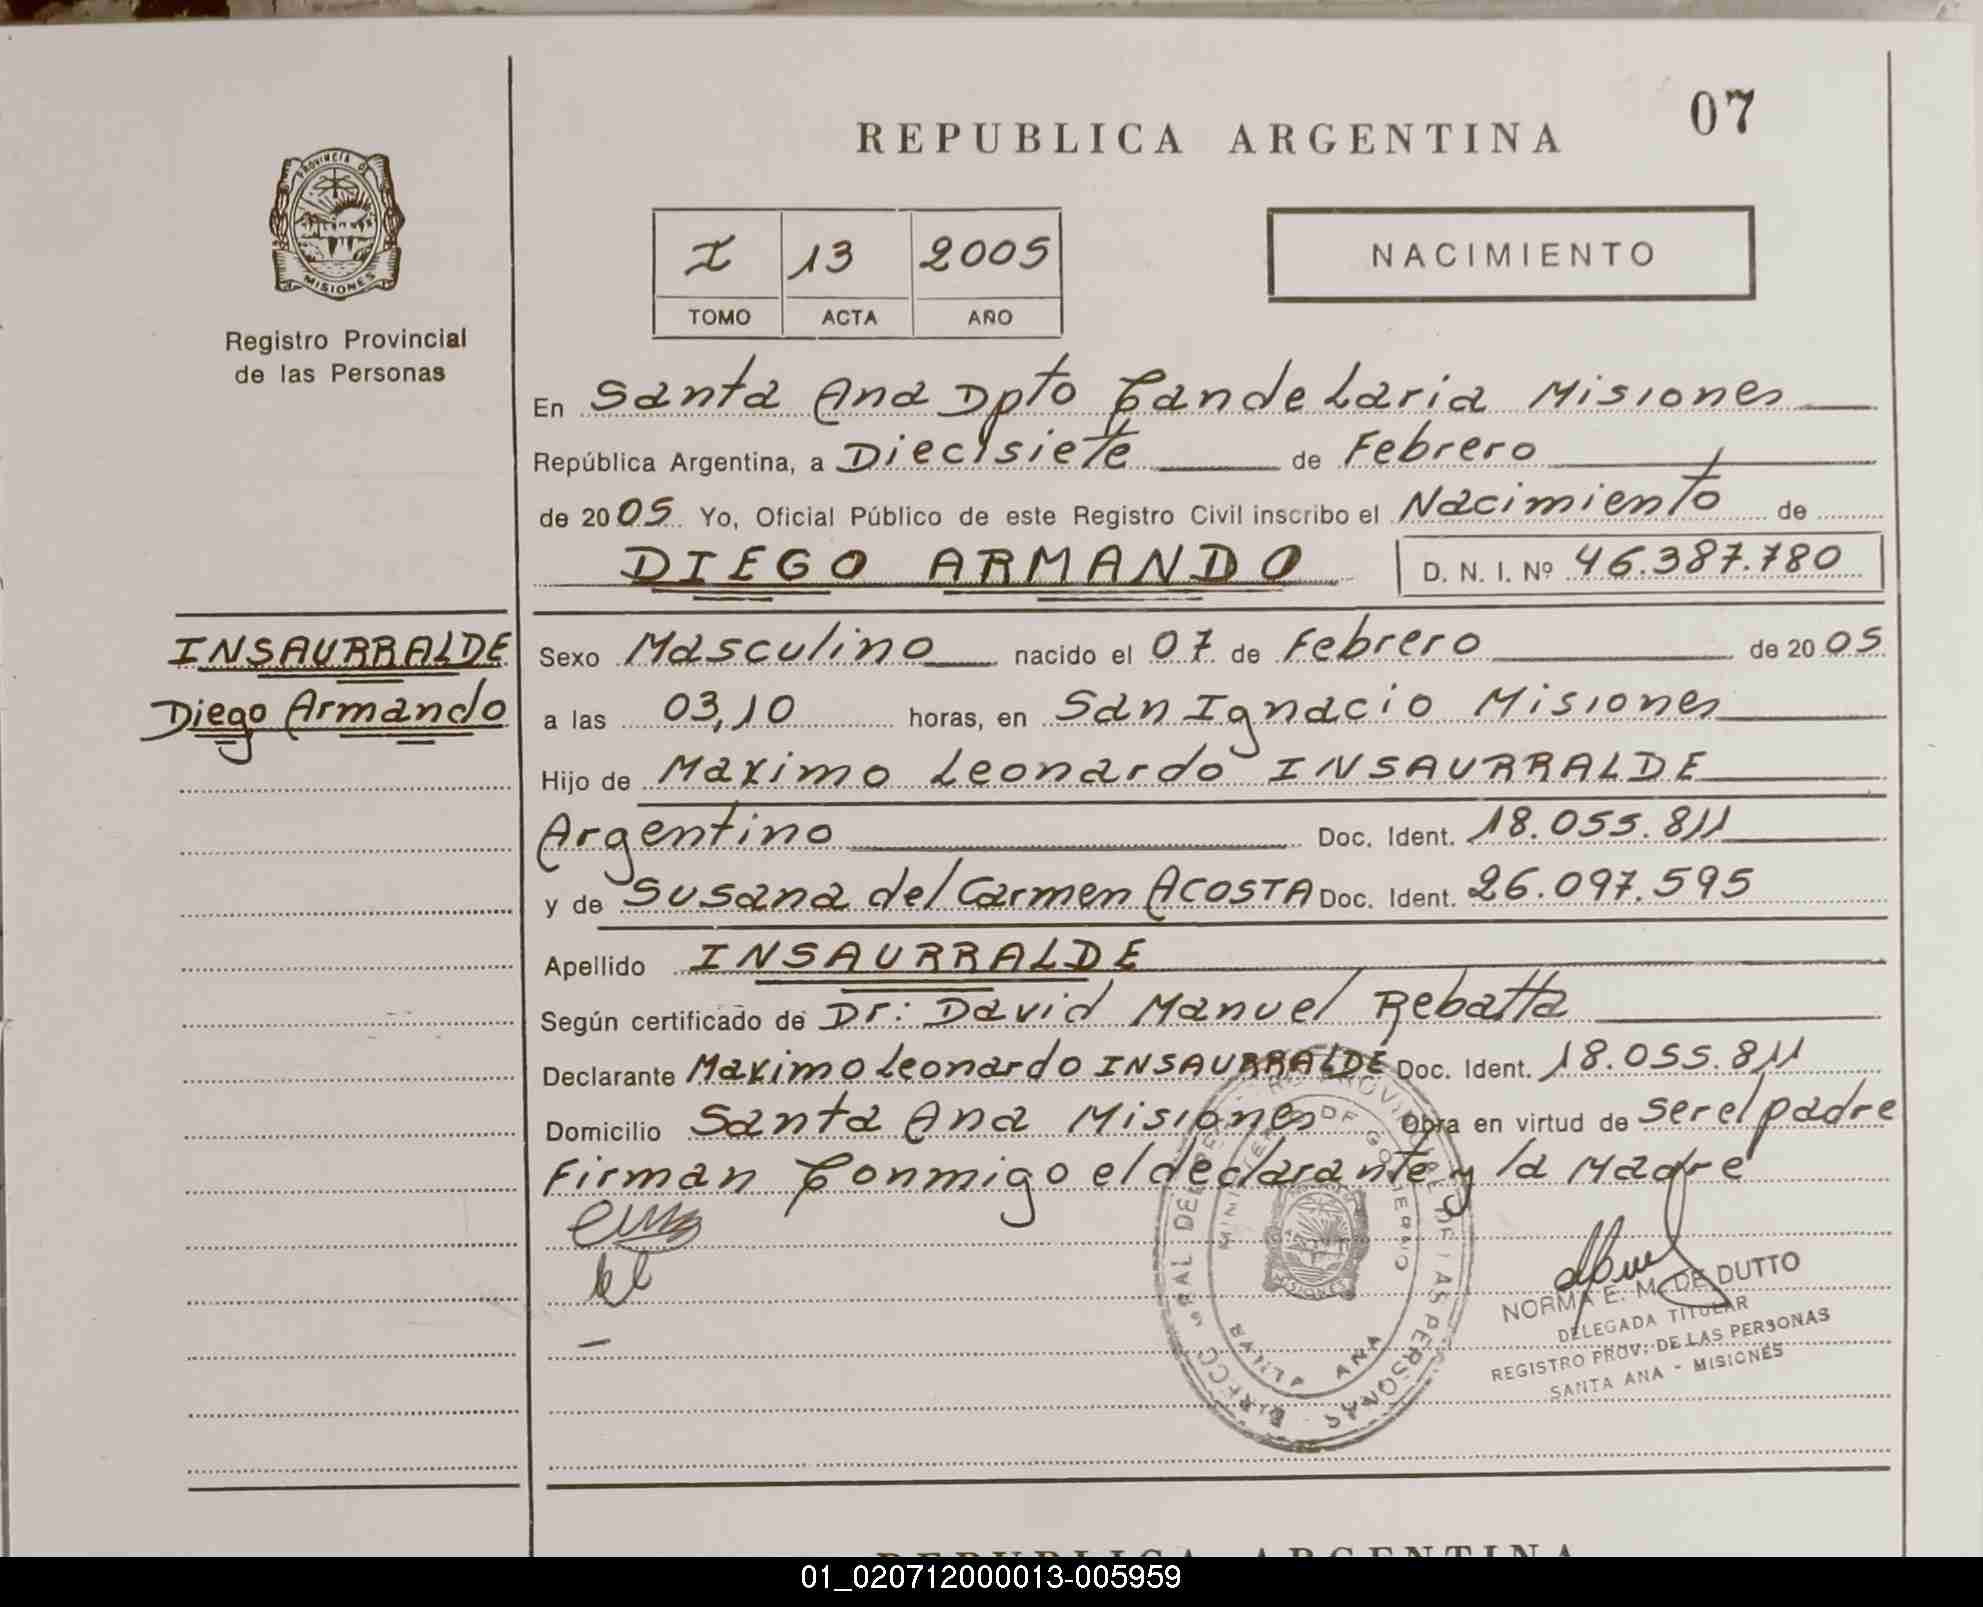 07
REPUBLICA ARGENTINA
PROVINCIA DE
MISIONES
Registro Provincial
de las Personas
I 13 2005
TOMO ACTA AÑO
NACIMIENTO
En Santa Ana Dpto Candelaria Misiones
República Argentina, a Diecisiete de Febrero
de 2005 Yo, Oficial Público de este Registro Civil inscribo el Nacimiento de
DIEGO ARMANDO D. N. I. Nº 46.387.780
INSAURRALDE
Diego Armando
Sexo Masculino nacido el 07 de Febrero de 2005
a las 03,10 horas, en San Ignacio Misiones
Hijo de Maximo Leonardo INSAURRALDE
Argentino Doc. Ident. 18.055.811
y de Susana del Carmen ACOSTA Doc. Ident. 26.097.595
Apellido INSAURRALDE
Según certificado de Dr: David Manuel Rebatta
Declarante Maximo Leonardo INSAURRALDE Doc. Ident. 18.055.811
Domicilio Santa Ana Misiones Obra en virtud de ser el padre
Firman Conmigo el declarante y la Madre
NORMA E. M. DE DUTTO
DELEGADA TITULAR
REGISTRO PROV. DE LAS PERSONAS
SANTA ANA - MISIONES
REPUBLICA ARGENTINA
01_020712000013-005959